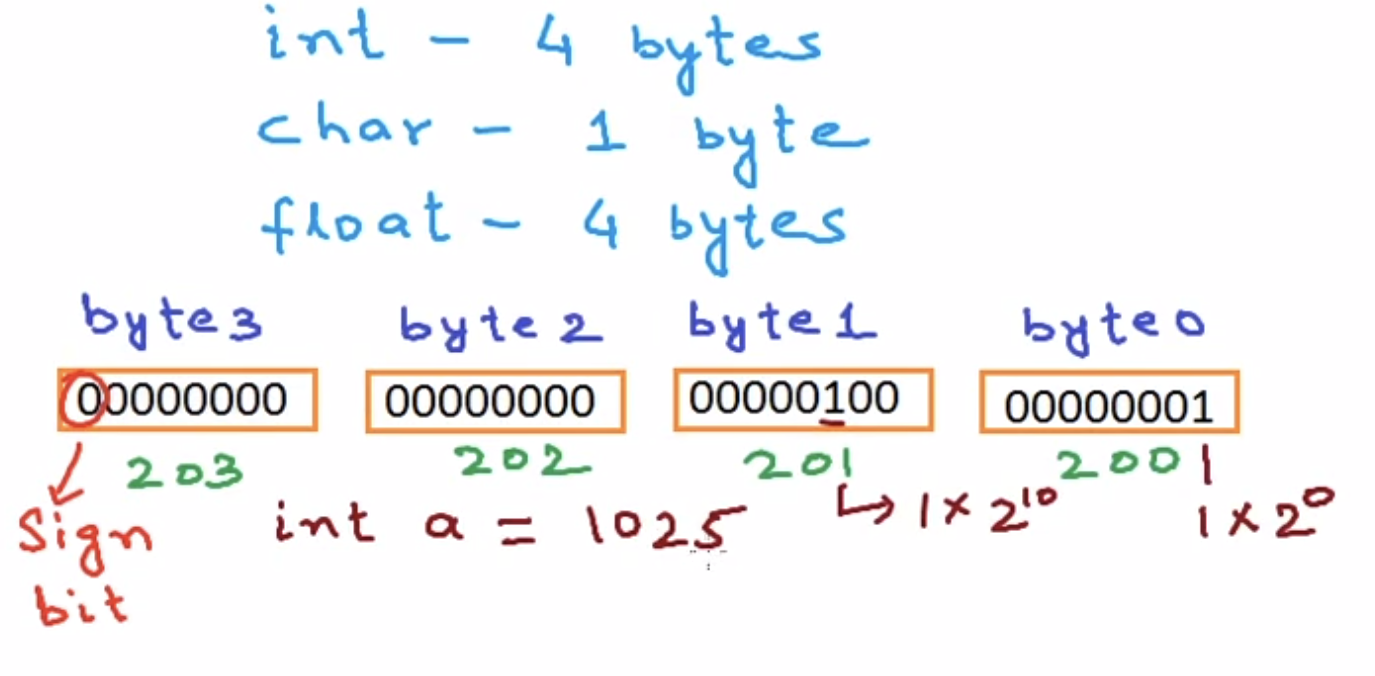 int - 4 bytes
char - 1 byte
float - 4 bytes
byte3 byte 2 byte1 byte0
00000000 00000000 00000100 00000001
203 202 201 200
int a = 1025 ↳ 1 × 2¹⁰ 1 × 2⁰
Sign
bit